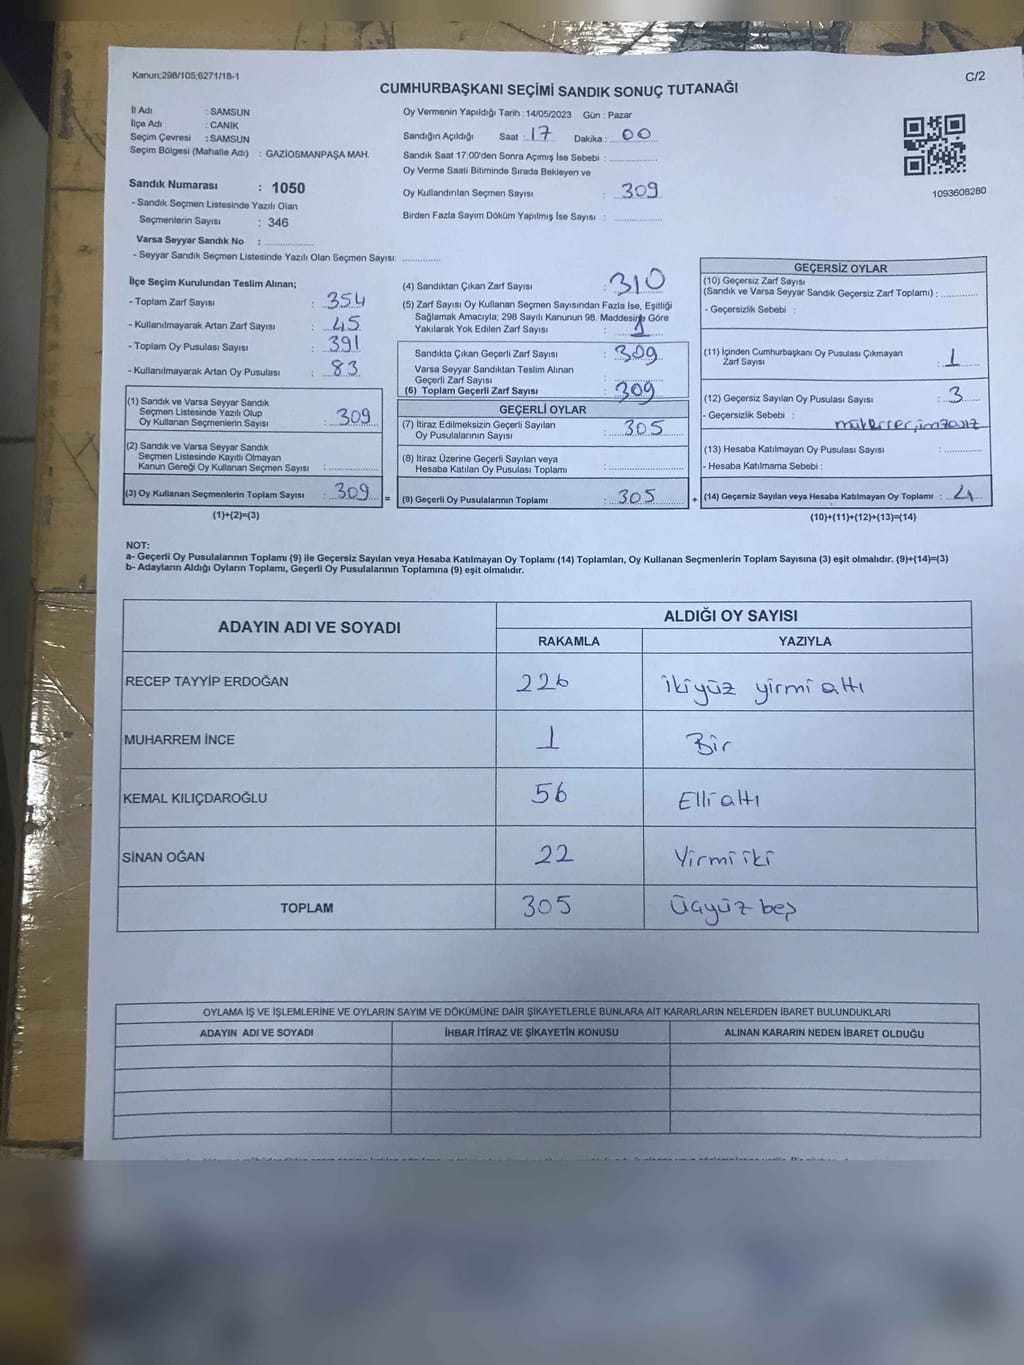 Kanun;298/105,6271/18-1
C/2
CUMHURBAŞKANI SEÇİMİ SANDIK SONUÇ TUTANAĞI
İl Adı : SAMSUN
İlçe Adı : CANİK
Seçim Çevresi : SAMSUN
Seçim Bölgesi (Mahalle Adı) : GAZİOSMANPAŞA MAH.
Sandık Numarası : 1050
- Sandık Seçmen Listesinde Yazılı Olan
Seçmenlerin Sayısı : 346
Varsa Seyyar Sandık No : ..............
- Seyyar Sandık Seçmen Listesinde Yazılı Olan Seçmen Sayısı: ............
Oy Vermenin Yapıldığı Tarih : 14/05/2023 Gün : Pazar
Sandığın Açıldığı Saat : 17 Dakika : 00
Sandık Saat 17:00'den Sonra Açımış İse Sebebi : ..............
Oy Verme Saati Bitiminde Sırada Bekleyen ve
Oy Kullandırılan Seçmen Sayısı : 309
Birden Fazla Sayım Döküm Yapılmış İse Sayısı : ..............
1093608280
İlçe Seçim Kurulundan Teslim Alınan;
- Toplam Zarf Sayısı : 354
- Kullanılmayarak Artan Zarf Sayısı : 45
- Toplam Oy Pusulası Sayısı : 391
- Kullanılmayarak Artan Oy Pusulası : 83
(1) Sandık ve Varsa Seyyar Sandık
Seçmen Listesinde Yazılı Olup
Oy Kullanan Seçmenlerin Sayısı : 309
(2) Sandık ve Varsa Seyyar Sandık
Seçmen Listesinde Kayıtlı Olmayan
Kanun Gereği Oy Kullanan Seçmen Sayısı : ..............
(3) Oy Kullanan Seçmenlerin Toplam Sayısı : 309 =
(1)+(2)=(3)
(4) Sandıktan Çıkan Zarf Sayısı : 310
(5) Zarf Sayısı Oy Kullanan Seçmen Sayısından Fazla İse, Eşitliği
Sağlamak Amacıyla; 298 Sayılı Kanunun 98. Maddesine Göre
Yakılarak Yok Edilen Zarf Sayısı : 1
Sandıkta Çıkan Geçerli Zarf Sayısı : 309
Varsa Seyyar Sandıktan Teslim Alınan
Geçerli Zarf Sayısı : ..............
(6) Toplam Geçerli Zarf Sayısı : 309
GEÇERLİ OYLAR
(7) İtiraz Edilmeksizin Geçerli Sayılan
Oy Pusulalarının Sayısı : 305
(8) İtiraz Üzerine Geçerli Sayılan veya
Hesaba Katılan Oy Pusulası Toplamı : ..............
(9) Geçerli Oy Pusulalarının Toplamı : 305 +
GEÇERSİZ OYLAR
(10) Geçersiz Zarf Sayısı
(Sandık ve Varsa Seyyar Sandık Geçersiz Zarf Toplamı) : ............
- Geçersizlik Sebebi :
(11) İçinden Cumhurbaşkanı Oy Pusulası Çıkmayan
Zarf Sayısı : 1
(12) Geçersiz Sayılan Oy Pusulası Sayısı : 3
- Geçersizlik Sebebi :
(13) Hesaba Katılmayan Oy Pusulası Sayısı : ............
- Hesaba Katılmama Sebebi :
(14) Geçersiz Sayılan veya Hesaba Katılmayan Oy Toplamı : 4
(10)+(11)+(12)+(13)=(14)
NOT:
a- Geçerli Oy Pusulalarının Toplamı (9) ile Geçersiz Sayılan veya Hesaba Katılmayan Oy Toplamı (14) Toplamları, Oy Kullanan Seçmenlerin Toplam Sayısına (3) eşit olmalıdır. (9)+(14)=(3)
b- Adayların Aldığı Oyların Toplamı, Geçerli Oy Pusulalarının Toplamına (9) eşit olmalıdır.
ADAYIN ADI VE SOYADI
ALDIĞI OY SAYISI
RAKAMLA YAZIYLA
RECEP TAYYİP ERDOĞAN 226 ikiyüz yirmi altı
MUHARREM İNCE 1 Bir
KEMAL KILIÇDAROĞLU 56 Elli altı
SİNAN OĞAN 22 Yirmi iki
TOPLAM 305 Üçyüz beş
OYLAMA İŞ VE İŞLEMLERİNE VE OYLARIN SAYIM VE DÖKÜMÜNE DAİR ŞİKAYETLERLE BUNLARA AİT KARARLARIN NELERDEN İBARET BULUNDUKLARI
ADAYIN ADI VE SOYADI İHBAR İTİRAZ VE ŞİKAYETİN KONUSU ALINAN KARARIN NEDEN İBARET OLDUĞU